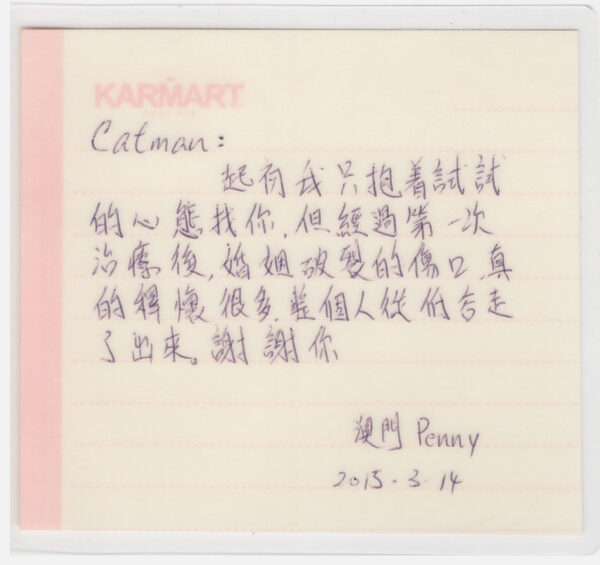 KARMART
Catman:
起初我只抱着試試
的心態找你,但經過第一次
治療後,婚姻破裂的傷口真
的釋懷很多,整個人從低谷走
了出來。謝謝你
澳門 Penny
2015.3.14